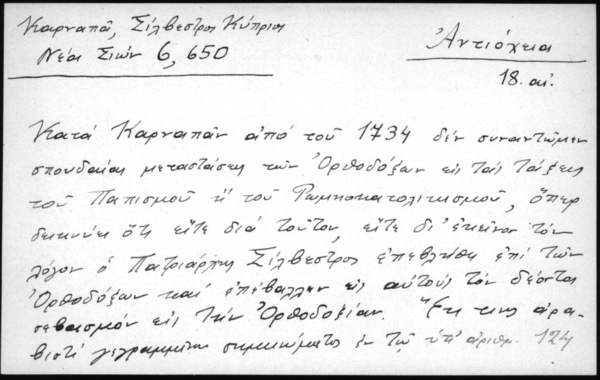 Καρναπᾶ, Σίλβεστρος Κύπριος
Νέα Σιών 6, 650
Ἀντιόχεια
18. αἰ.
Κατά Καρναπᾶν ἀπό τοῦ 1734 δέν συναντῶμεν
σπουδαίας μεταστάσεις τῶν Ὀρθοδόξων εἰς τάς τάξεις
τοῦ Παπισμοῦ ἤ τοῦ Ρωμηοκατολικισμοῦ, ὅπερ
δεικνύει ὅτι εἴτε διά τοῦτον, εἴτε δι' ἐκεῖνον τόν
λόγον ὁ Πατριάρχης Σίλβεστρος ἐπεβλήθη ἐπί τῶν
Ὀρθοδόξων καί ἐπέβαλλεν εἰς αὐτούς τόν δέοντα
σεβασμόν εἰς τήν Ὀρθοδοξίαν. Ἔκ τινος ἀρα-
βιστί γεγραμμένου σημειώματος ἐν τῷ ὑπ' ἀριθμ. 124